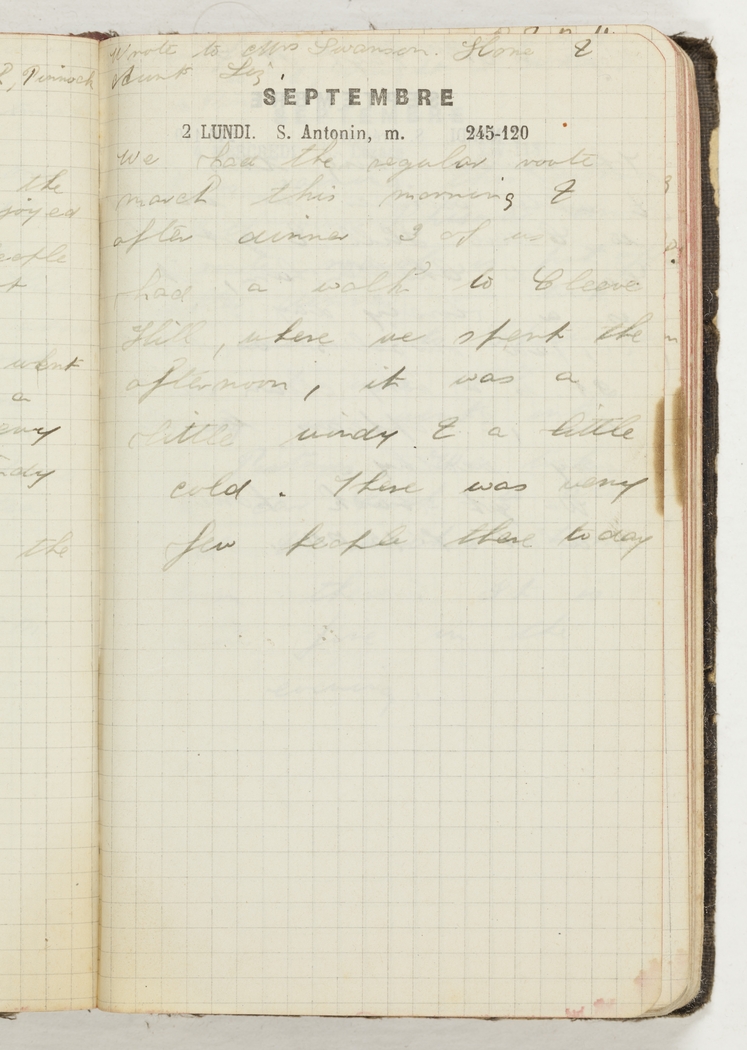 Wrote to Mrs Swanson. Home &
Aunt Liz.
SEPTEMBRE
2 LUNDI. S. Antonin, m. 245-120
We had the regular route
march this morning &
after dinner 3 of us
had a walk to Cleeve
Hill, where we spent the
afternoon, it was a
little windy & a little
cold. There was very
few people there today
Pinnock
the
joyed
eople
went
a
the